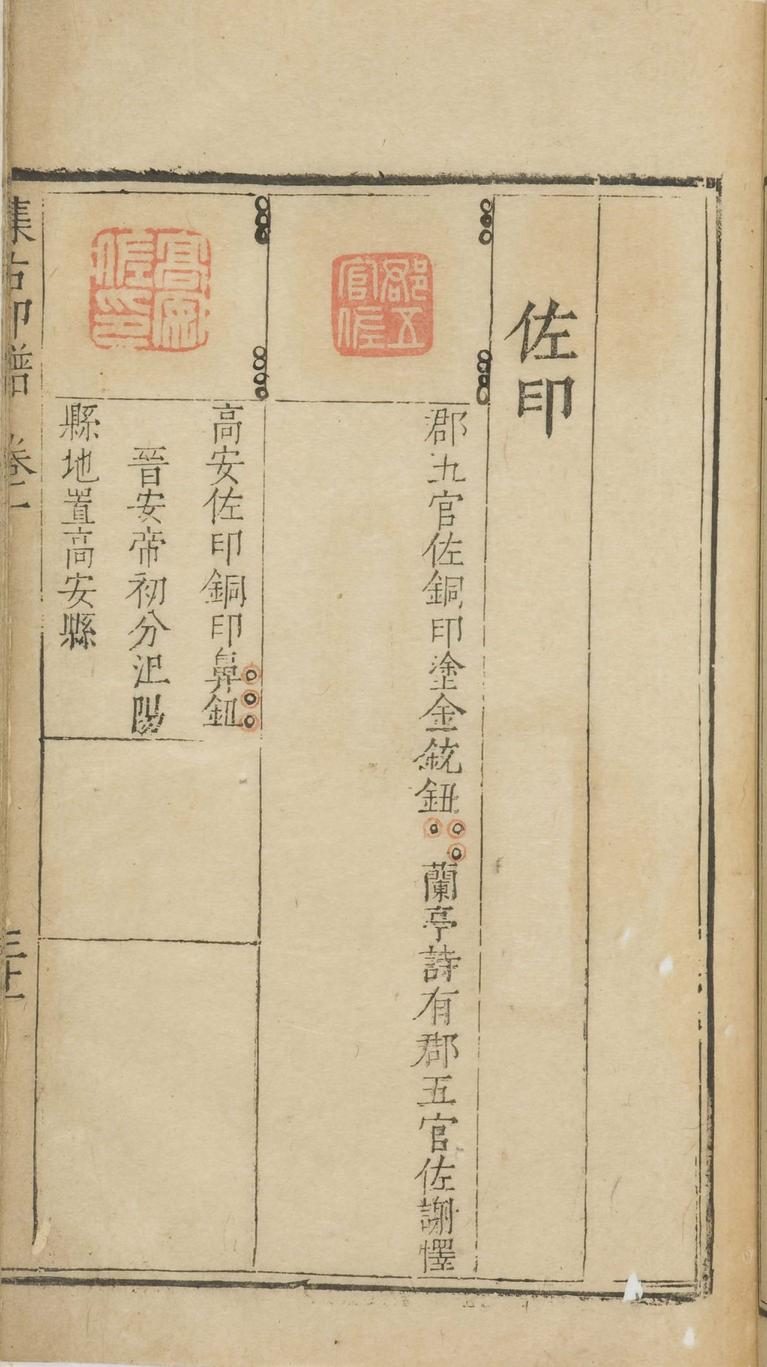 佐印
郡五官佐
郡五官佐銅印塗金銃鈕 蘭亭詩有郡五官佐謝懌
高安佐印
高安佐印銅印鼻鈕
晉安帝初分沮陽
縣地置高安縣
集古印譜 卷二 三十一